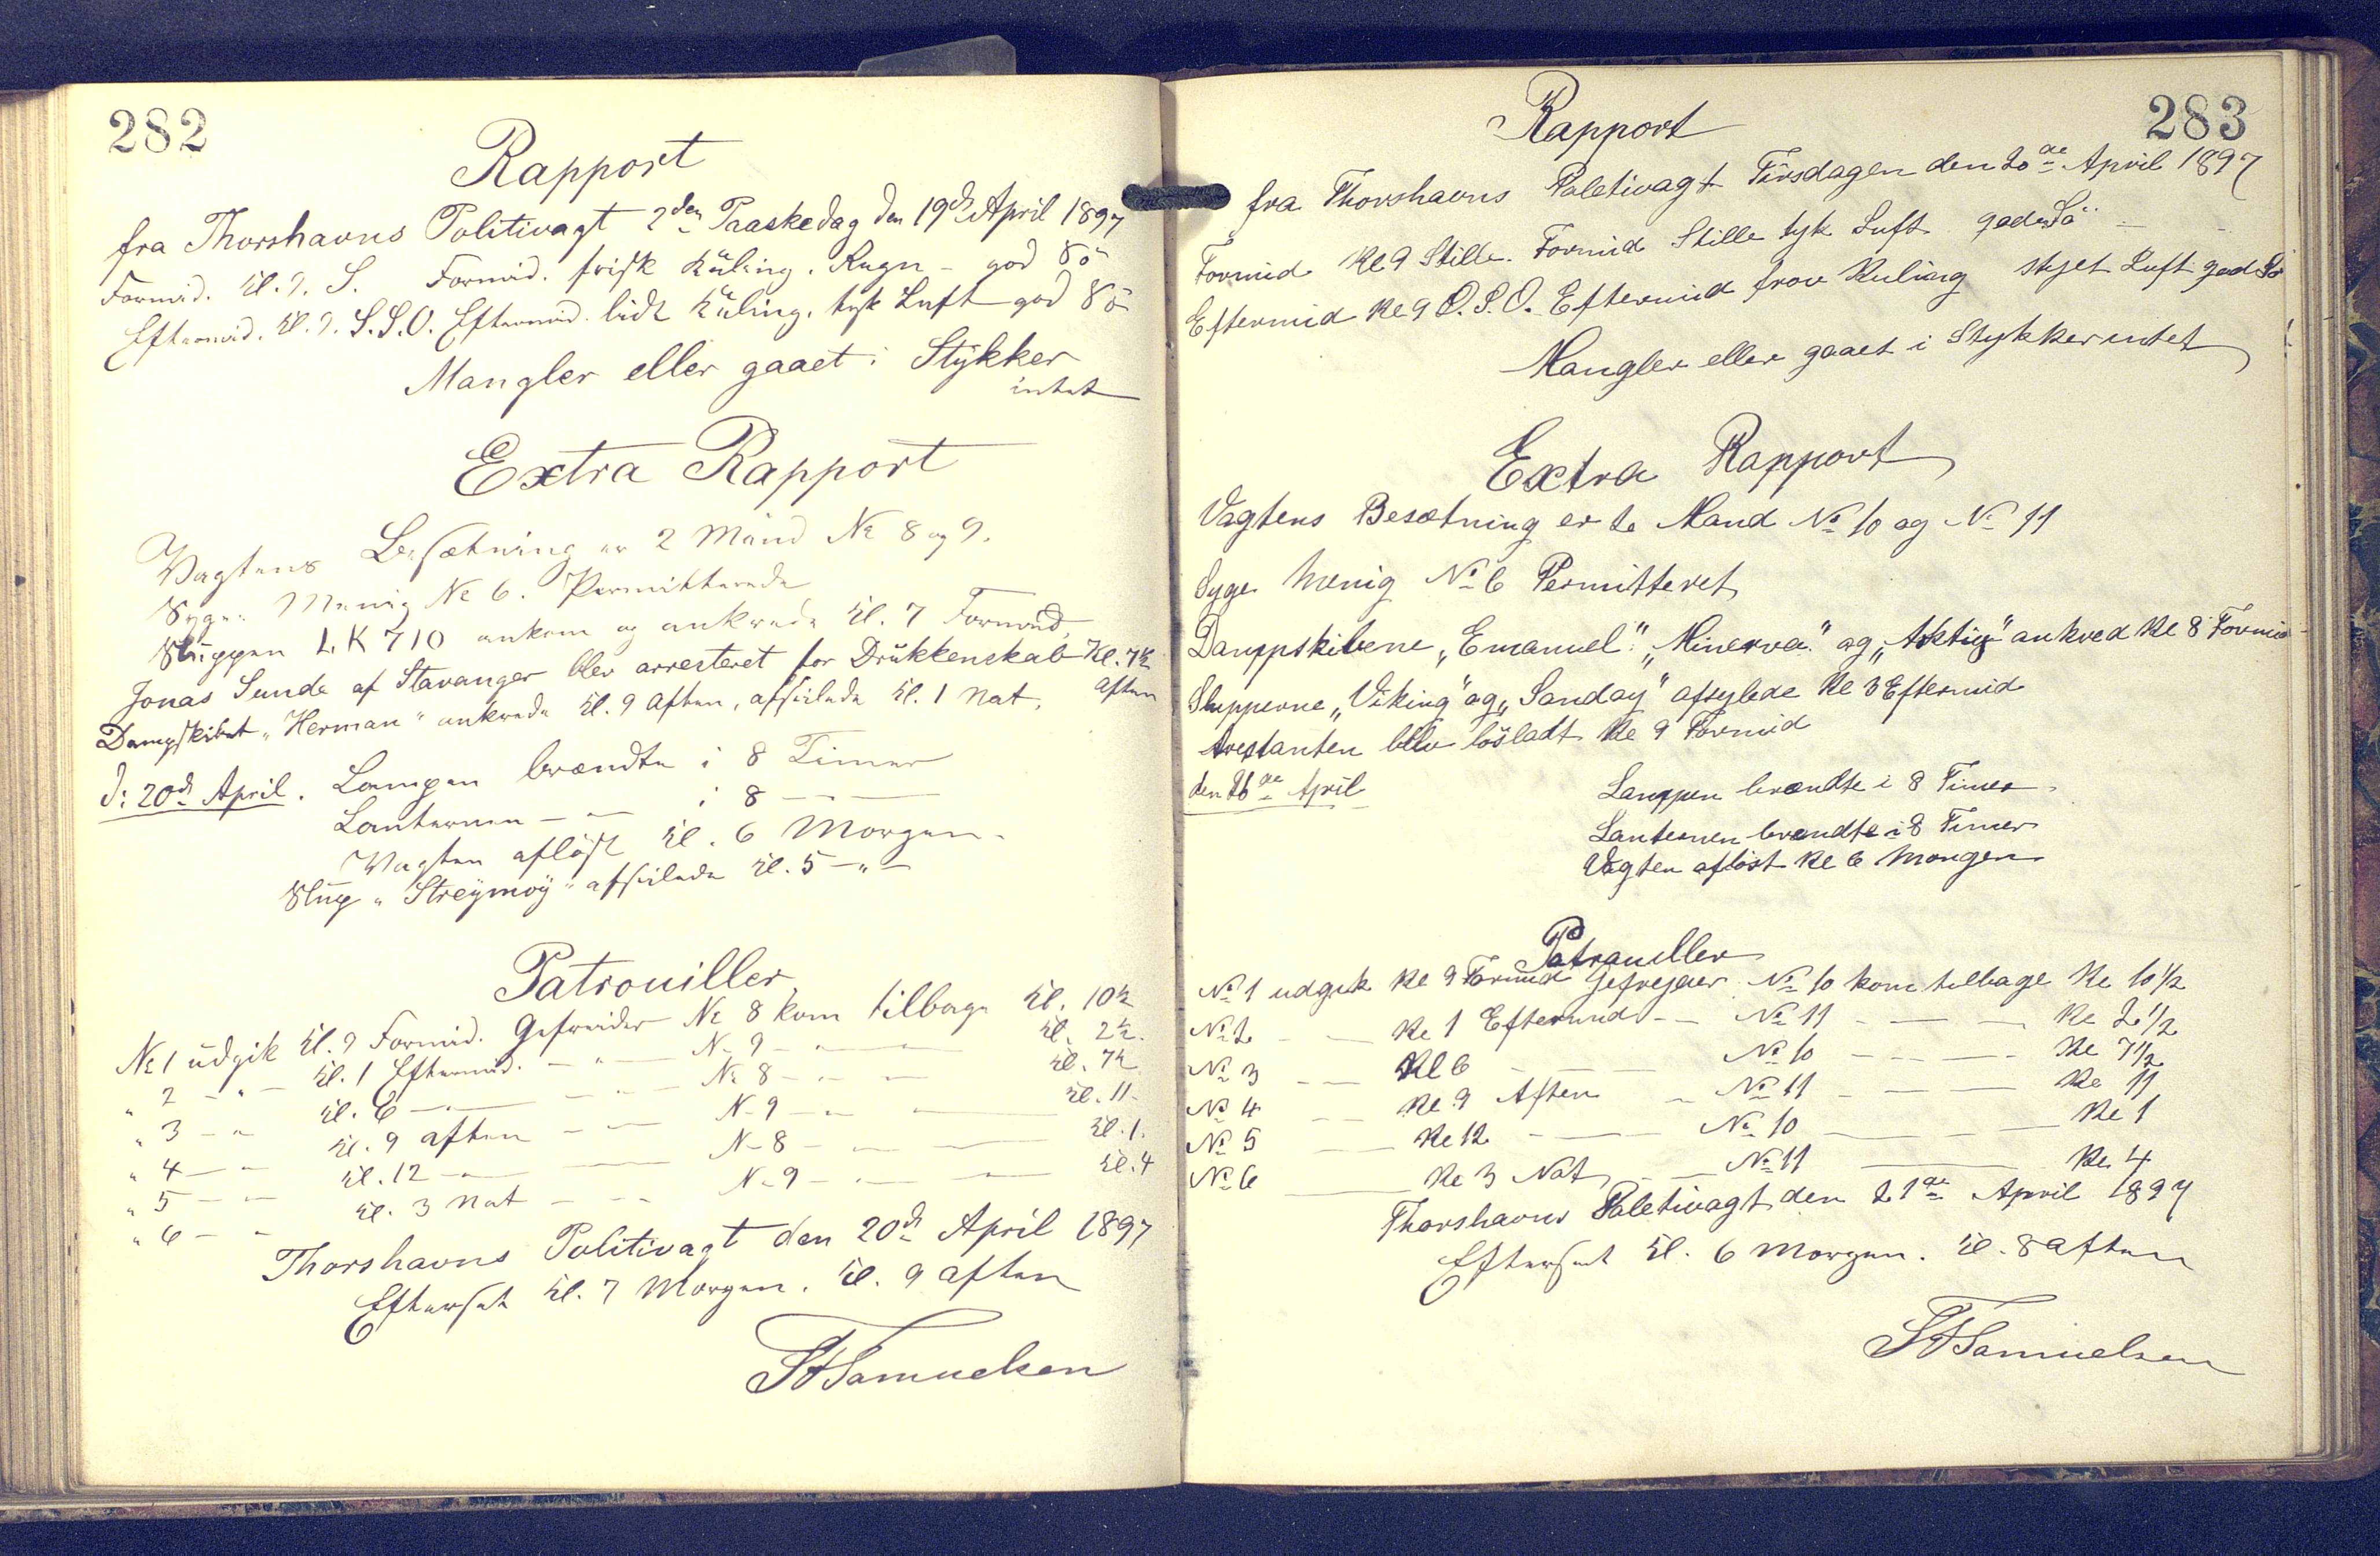 282
Rapport
fra Thorshavns Politivagt 2den Paaskedag den 19de April 1897
Formid. Kl. 9. S. Formid. frisk Küling. Regn - god Sö
Eftermid. Kl. 9. S.S.O. Eftermid. lidt Küling. tyk Luft god Sö
Mangler eller gaaet i Stykker
intet
Extra Rapport
Vagtens Besætning er 2 Mand № 8 og 9.
Syge: Menig № 6. Permitterede
Sluppen L.K 710 ankom og ankrede Kl. 7 Formid.
Jonas Sunde af Stavanger blev arresteret for Drukkenskab Kl. 7½
Aften
Dampskibet "Herman" ankrede Kl. 9 Aften, afseilede Kl. 1 Nat.
d: 20de April. Lampen brændte i 8 Timer
Lanternen - " - i 8 — —
Vagten aflöst Kl. 6 Morgen.
Slup "Streymoy" afseilede Kl. 5 - " -
Patrouiller
№ 1 udgik Kl. 9 Formid. Gefreider № 8 kom tilbage Kl. 10½
" 2 - " - Kl. 1 Eftermid. - " - № 9 - " - Kl. 2½.
" 3 - " Kl. 6 - " - № 8 - " - Kl. 7½
" 4 - " Kl. 9 Aften - " - № 9 - " - Kl. 11.
" 5 - " Kl. 12 - " - № 8 - " - Kl. 1.
" 6 - " Kl. 3 Nat - " - № 9 - " - Kl. 4
Thorshavns Politivagt den 20de April 1897
Efterset Kl. 7 Morgen. Kl. 9 Aften
Samuelsen
283
Rapport
fra Thorshavns Poletivagt Tirsdagen den 20de April 1897
Formid Kl 9 Stille. Formid Stille tyk Luft god Sö
Eftermid Kl 9 O.S.O. Eftermid Kuling Luft god Sö
Mangler eller gaaet i Stykker intet
Extra Rapport
Vagtens Besætning er to Mand № 10 og № 11
Syge Menig № 6 Permitteret
Dampskibene „Emanuel" „Minerva" og ankred Kl 8 Formid
Slupperne „Viking" og „Sanday" afsejlede Kl 3 Eftermid
Arestanten blev lösladt Kl 9 Formid
den April Lampen brændte i 8 Timer
Lanternen brændte i 8 Timer
Vagten aflöst Kl 6 Morgen
Patrouller
№ 1 udgik Kl 9 Formid Gefrejder № 10 kom tilbage Kl 10 1/2
№ 2 — Kl 1 Eftermid — № 11 — Kl 2 1/2
№ 3 — Kl 6 — № 10 — Kl 7 1/2
№ 4 — Kl 9 Aften — № 11 — Kl 11
№ 5 — Kl 12 — № 10 — Kl 1
№ 6 — Kl 3 Nat — № 11 — Kl 4
Thorshavns Poletivagt den 21de April 1897
Efterset Kl. 6 Morgen. Kl. 8 Aften
Samuelsen